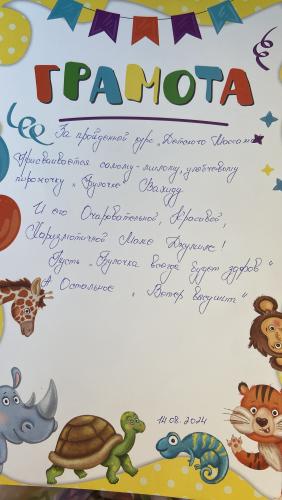 ГРАМОТА
За пройденный курс „Детского Массажа
Присваивается самому-милому, улыбчивому
пирожочку „Булочке" Вахиду.
И его Очаровательной, Красивой,
Харизматичной Маме Джулие!
Пусть „Булочка всегда будет здоров"
А Остальное „Ветер высушит"
14.08.2024